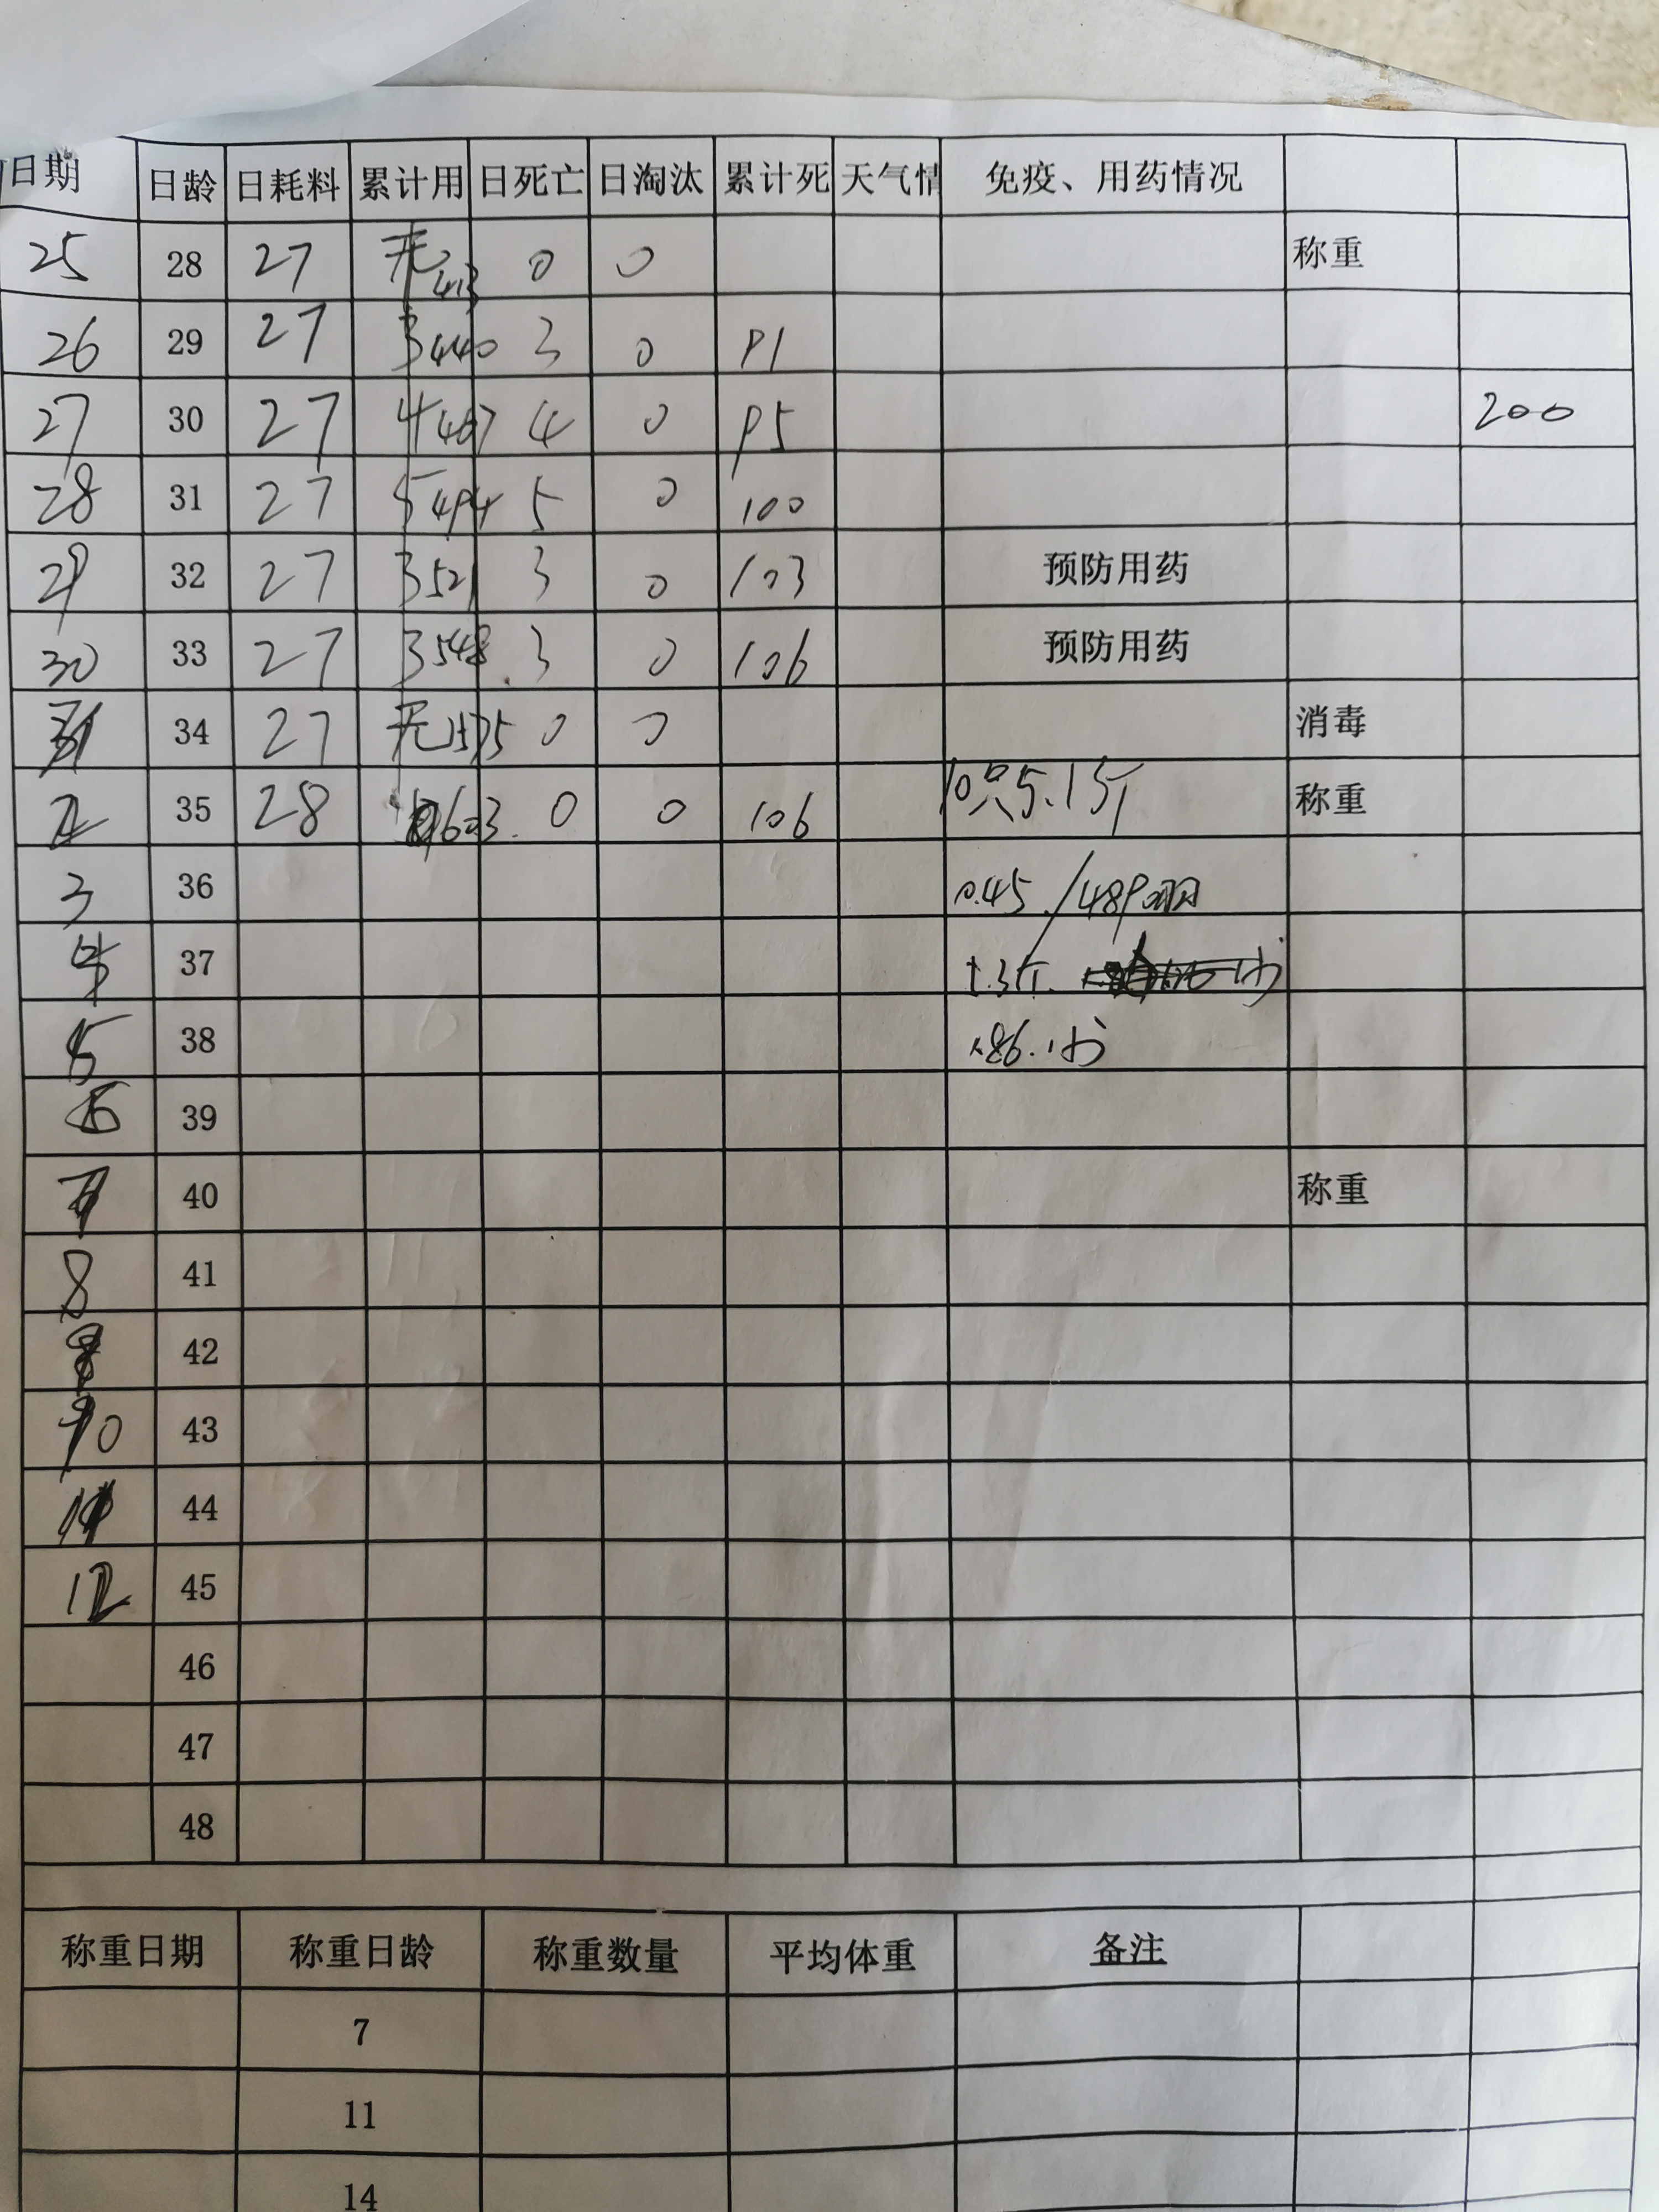 日期 日龄 日耗料 累计用 日死亡 日淘汰 累计死 天气情 免疫、用药情况
25 28 27 无 413 0 0 称重
26 29 27 3 440 3 0 91
27 30 27 4 467 4 0 95 200
28 31 27 5 494 5 0 100
29 32 27 3 521 3 0 103 预防用药
30 33 27 3 548 3 0 106 预防用药
34 27 无 575 0 0 消毒
2 35 28 603 0 0 106 10只5.1斤 称重
3 36 0.45 / 489
4 37
5 38
6 39
7 40 称重
8 41
42
10 43
11 44
12 45
46
47
48
称重日期 称重日龄 称重数量 平均体重 备注
7
11
14